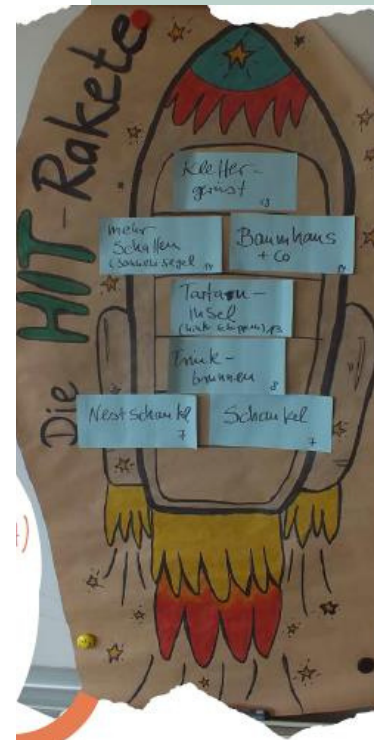 Die HIT-Rakete
Kletter-
gerüst
mehr
Schatten
(Sonnensegel
14
Baumhaus
+ Co
14
Tartan-
Insel
13
Trink-
brunnen
8
Nestschaukel
7
Schaukel
7